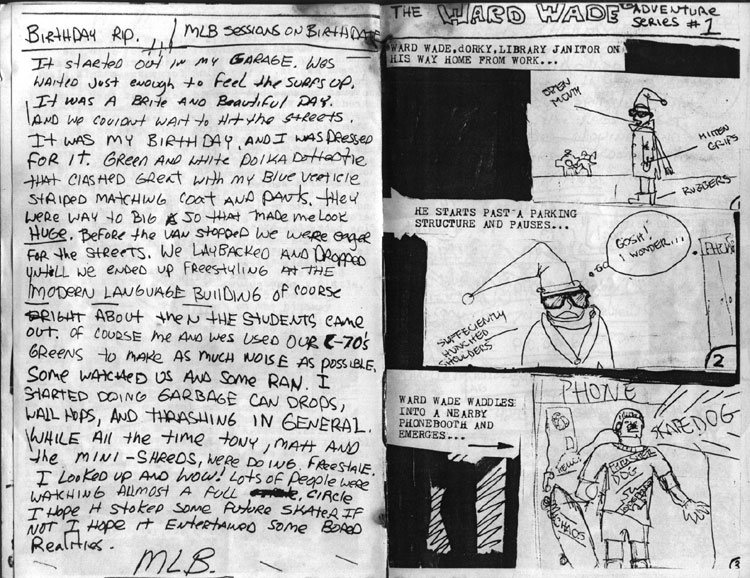 BIRTHDAY RIP. !! MLB SESSIONS ON BIRTHDATE
It started out in my GARAGE. Wes
waited Just enough to feel the SURFS UP.
It was a Brite and Beautiful DAY.
And we couldnt wait to hit the streets.
It was my BIRTHDAY, AND I WAS DRESSED
FOR it. Green and white Polka Dotted tie
that clashed great with my Blue verticle
striped matching coat and pants. they
were way to Big so that made me look
HUGE. Before the van stopped we were eager
for the streets. We Laybacked and Dropped
untill we ended up freestyling at the
MODERN LANGUAGE BUILDING of course
ABOUT then the students came
out. Of course me and Wes used our C-70's
Greens to make as much noise as possible.
Some watched us and some ran. I
started doing garbage can drops,
wall hops, and thrashing in general.
While all the time Tony, Matt and
the mini-shreds, were doing freestale.
I Looked up and wow! Lots of people were
watching allmost a full circle
I hope it stoked some future skater if
not I hope it entertained some Bored
Realities.
MLB.
THE WARD WADE ADVENTURE
SERIES #1
WARD WADE, DORKY, LIBRARY JANITOR ON
HIS WAY HOME FROM WORK...
OPEN
MOUTH
MITTEN
GRIPS
RUBBERS
HE STARTS PAST A PARKING
STRUCTURE AND PAUSES...
GOSH!
I WONDER...
PHONE
SUFFECIENTLY
HUNCHED
SHOULDERS
2
WARD WADE WADDLES
INTO A NEARBY
PHONEBOOTH AND
EMERGES...
PHONE
SKATEDOG
DOG
CHAOS
3